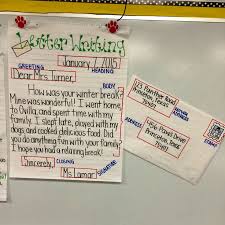 Letter Writing
January 7, 2015
GREETING
HEADING
Dear Mrs. Turner,
BODY
How was your winter break?
Mine was wonderful! I went home
to Ovilla, and spent time with my
family. I slept late, played with my
dogs and cooked delicious food. Did
you do anything fun with your family?
I hope you had a relaxing break!
Sincerely,
CLOSING
Ms. Lamar
SIGNATURE
123 Panther Road
Texas
456 Paws Drive
Princeton, Texas